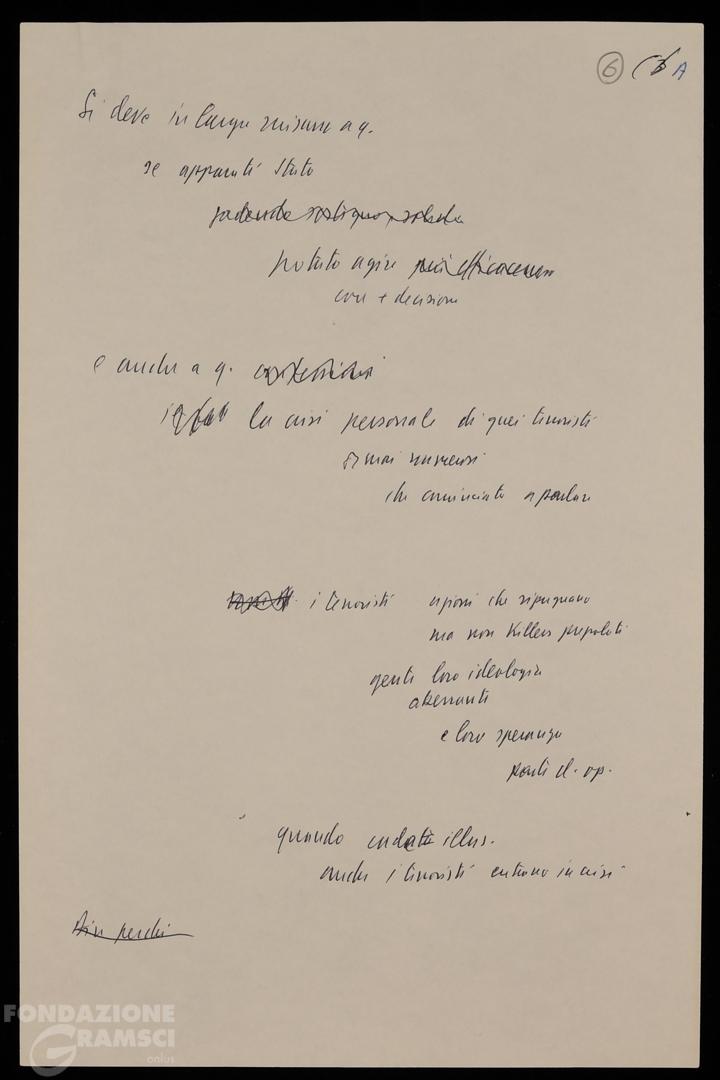 6 6 A
Si deve in larga misura a q.
se apparati Stato
potuto agire più efficacemen
con + decisione
e anche a q.
la crisi personale di quei terroristi
ormai numerosi
che cominciato a parlare
i terroristi azioni che ripugnano
ma non Killers prezzolati
gente loro ideologia
aberrante
e loro speranza
parte cl. op.
quando cadute illus.
anche i terroristi entrano in crisi
perché
FONDAZIONE
GRAMSCI
onlus